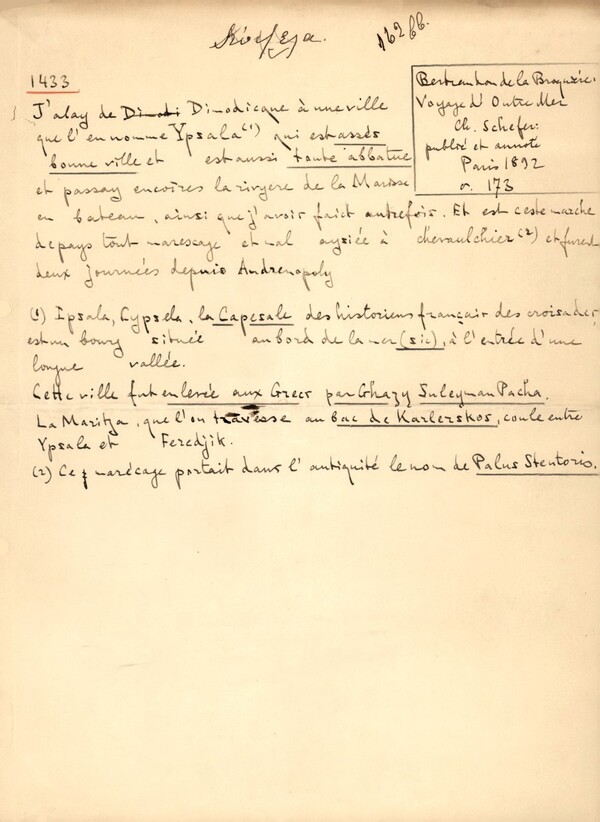 Κύψελα.
1433
Bertrandon de la Broquière.
Voyage d'Outre Mer
Ch. Schefer.
publié et annoté
Paris 1892
p. 173
J'alay de Dimodi Dimodicque à une ville
que l'en nomme Ypsala (1) qui est assés
bonne ville et est aussi toute abbatue
et passay encoires la rivyere de la Marisse
en bateau, ainsi que j'avois faict autrefois. Et est ceste marche
de pays tout marescage et mal aysiée à chevaulchier (2) et furent
deux journées depuis Andrenopoly
(1) Ipsala, Cypsela, la Capesale des historiens français des croisades,
est un bourg située au bord de la mer (sic), à l'entrée d'une
longue vallée.
Cette ville fut enlevée aux Grecs par Ghazy Suleyman Pacha.
La Maritza, que l'on traverse au bac de Karlerskos, coule entre
Ypsala et Feredjik.
(2) Ce marécage portait dans l'antiquité le nom de Palus Stentoris.